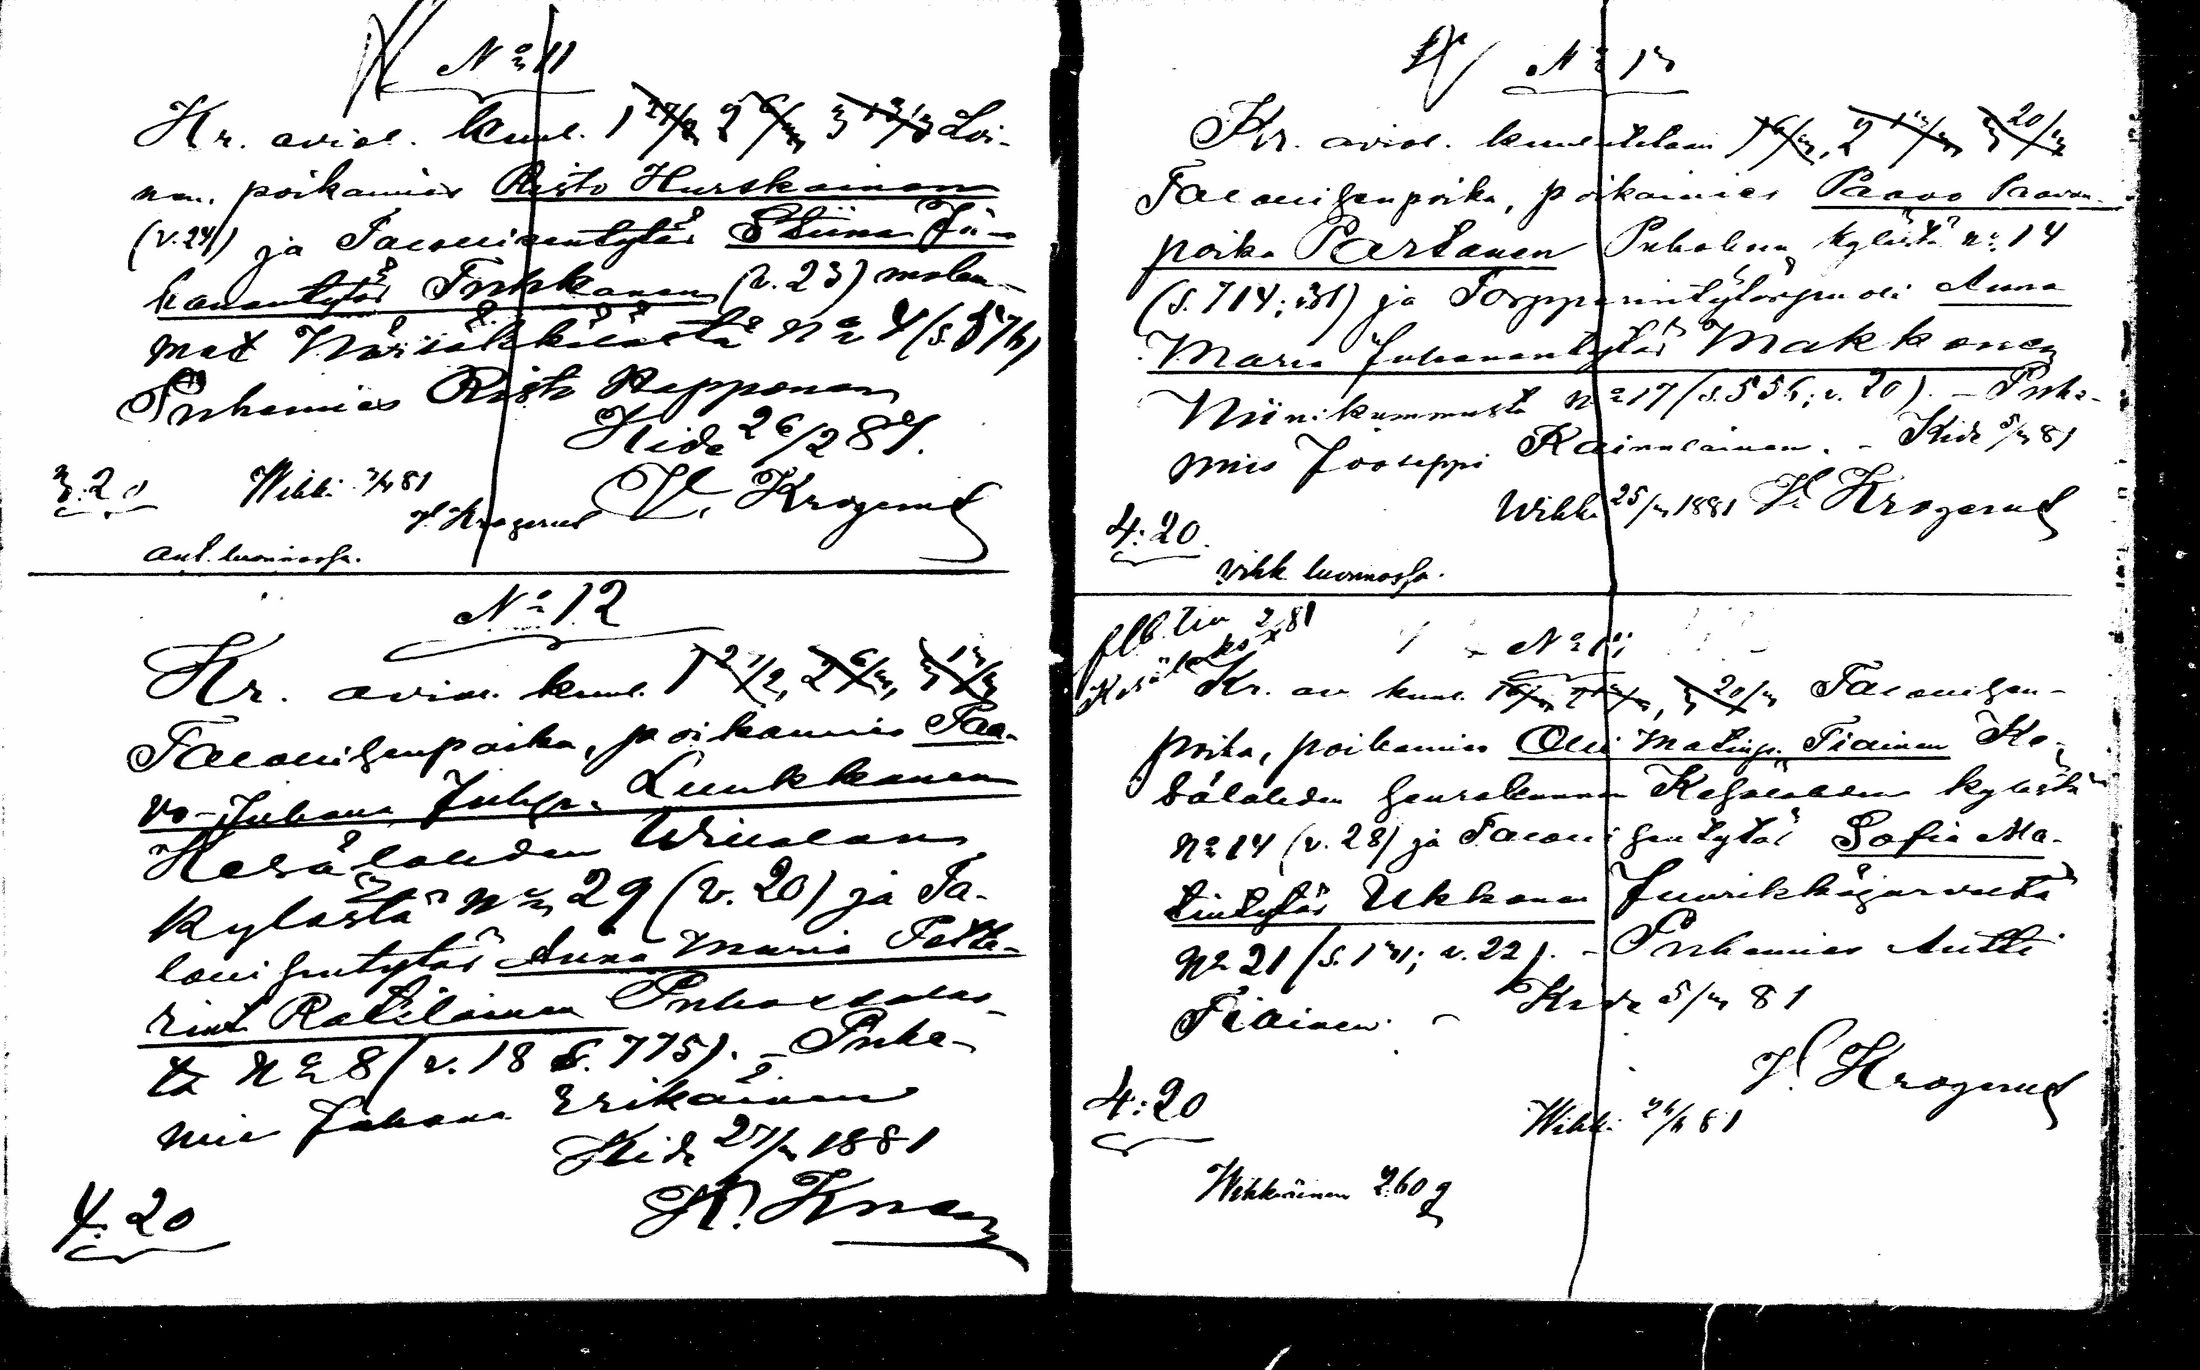 No 11
Kr. aviol. kuul. 1 27/2 2 6/3 3 13/3 Loi-
nen, poikamies Risto Hurskainen
(v. 24) ja Talonisentytär Stiina Jü-
hanantytär Turkkanen (v. 23) molem-
mat Närsäkkälästä No 4 (s. 576)
Puhemies Risto Repponen
Kide 26/2 81.
3:20 Wihki 3/4 81
K. Krogerus K. Krogerus
ant. luonnossa.
No 12
Kr. aviol. kuul. 1 27/2, 2 6/3, 3 13/3
Talonisenpoika, poikamies Paa-
vo-Juhana Juhp. Luukkanen
Kesälahden Willalan
kylästä No 29 (v. 20) ja Ta-
lonisentytär Anna Maria Pette-
rint. Ratilainen Puhossalos-
ta No 8 (v. 18 s. 775). - Puhe-
mies Juhana Erikäinen
Kide 27/2 1881
K. Krog
4:20
No 13
Kr. aviol. kuulutetaan 1 6/3, 2 13/3 3 20/3
Talonisenpoika, poikamies Paavo Paavon-
poika Partanen Puhoksen kylästä No 14
(s. 714; 31) ja Torpparintytärpuoli Anna
Maria Juhanantytär Makkonen
Niinikummusta No 17 (s. 556; v. 20). - Puhe-
mies Jooseppi Kainulainen. - Kide 5/3 81
Wihki 25/3 1881 K. Krogerus
4:20.
vihk. luonnossa.
81
No 14
Kr. av. kuul. 1 6/3 2 13/3, 3 20/3 Talonisen-
poika, poikamies Olli Matinp. Tiainen Ke-
sälahden seurakunnan Kesälahden kylästä
No 14 (v. 28) ja Talonisentytär Sofia Ma-
tintytär Ukkonen Juurikkajärveltä
No 21 (s. 131; v. 22). - Puhemies Antti
Tiainen. - Kide 5/3 81
K. Krogerus
4:20
Wihki 81
Wihkiäinen 2.60